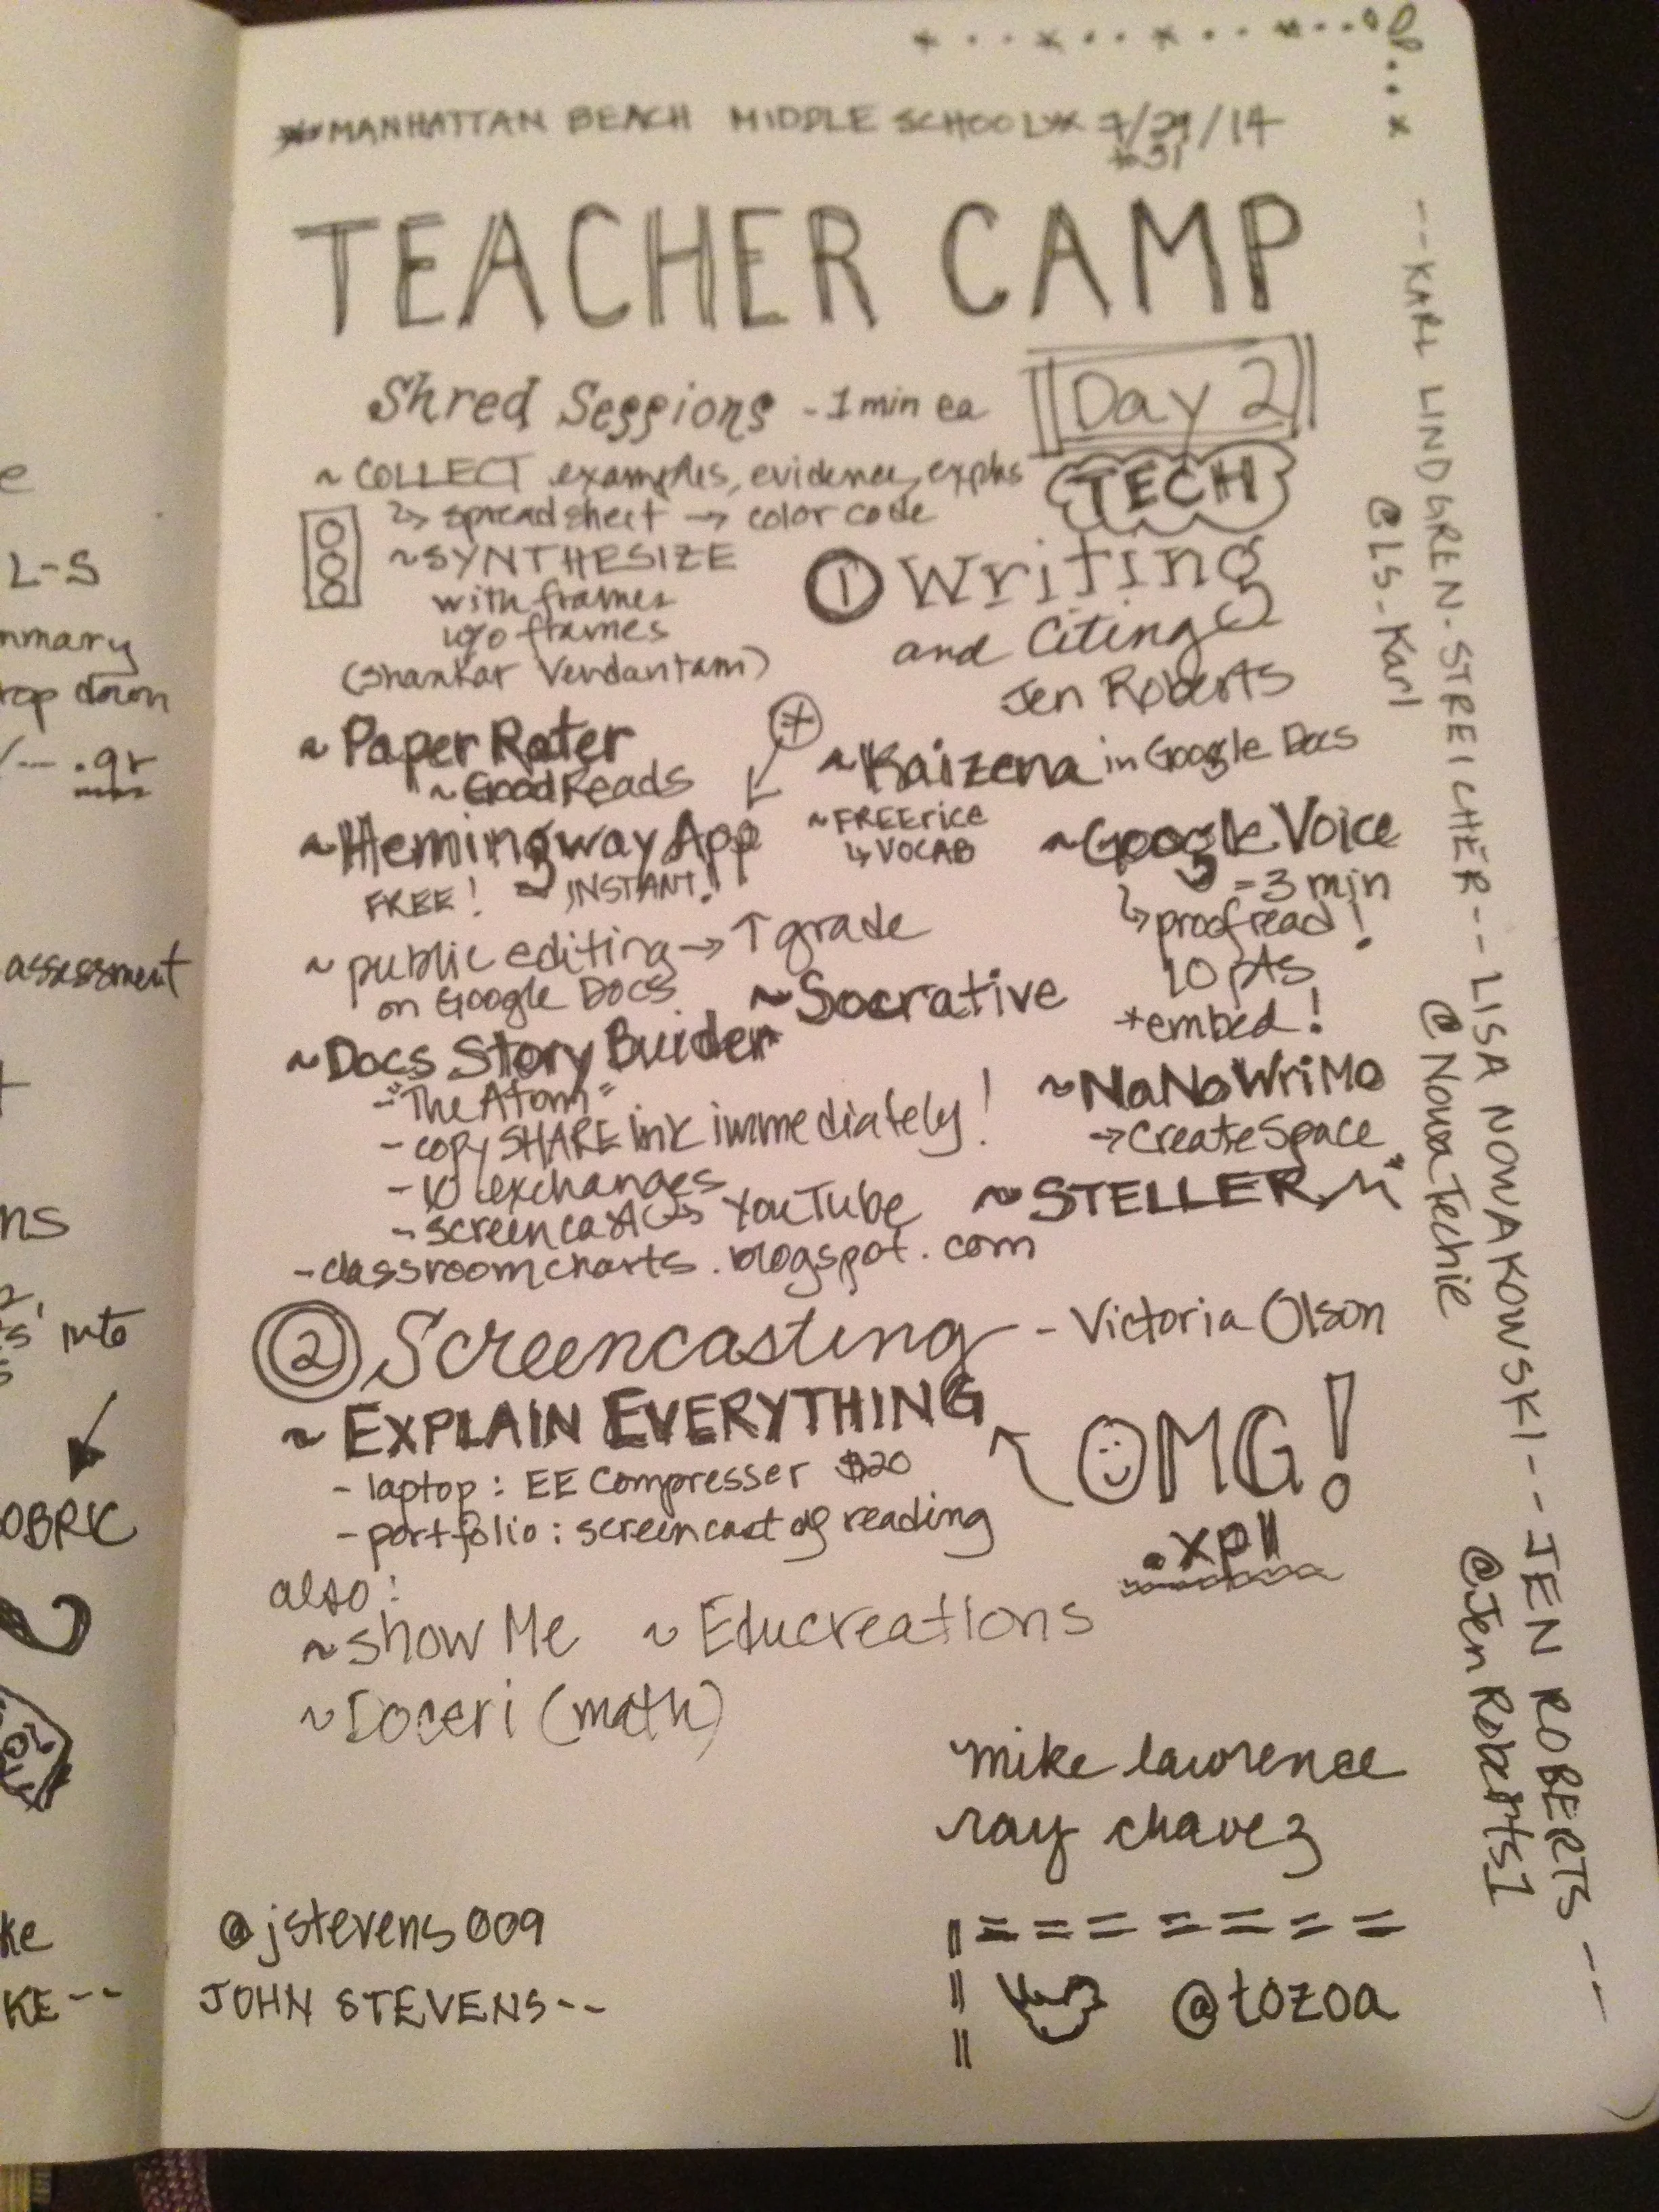 MANHATTAN BEACH MIDDLE SCHOOL 7/29/14
to 31
TEACHER CAMP
Day 2
TECH
Shred Sessions - 1 min ea
~ COLLECT examples, evidence, explns
↳ spreadsheet → color code
~SYNTHESIZE
with frames
w/o frames
(Shankar Verdantam)
① Writing
and Citing
Jen Roberts
~ Paper Rater
~ GoodReads
~ Kaizena in Google Docs
~ Hemingway App
FREE! - INSTANT!
~ FREErice
↳ VOCAB
~ Google Voice
= 3 min
↳ proofread!
10 pts
+embed!
~ public editing → ↑ grade
on Google Docs
~ Socrative
~ Docs Story Buider
- "The Atom"
- copy SHARE link immediately!
- 10 exchanges
- screencast → YouTube
- classroomcharts.blogspot.com
~ NaNoWriMo
→ CreateSpace
~ STELLER
② Screencasting - Victoria Olson
~ EXPLAIN EVERYTHING
OMG!
- laptop: EE Compresser $20
- portfolio: screencast of reading
.xpl
also:
~ Show Me ~ Educreations
~ Doceri (math)
mike lawrence
ray chavez
@jstevens009
JOHN STEVENS--
@tozoa
--KARL LINDGREN-STREICHER--LISA NOWAKOWSKI--JEN ROBERTS--
@LS-Karl
@NowaTechie
@JenRoberts1
L-S
mmary
top down
.qr
assessment
ns
into
OBRIC
ke
KE--